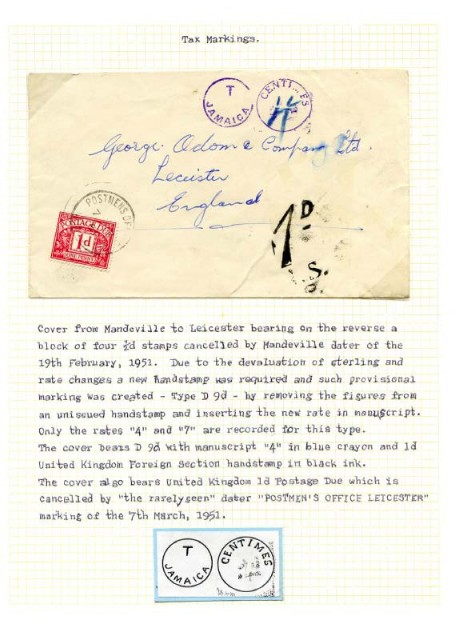 Tax Markings.
T
JAMAICA
CENTIMES
4
George Odom & Company Ltd.
Leicester
England
POSTMENS OF
POSTAGE DUE
1d
ONE PENNY
1D
Cover from Mandeville to Leicester bearing on the reverse a
block of four ½d stamps cancelled by Mandeville dater of the
19th February, 1951. Due to the devaluation of sterling and
rate changes a new handstamp was required and such provisional
marking was created - Type D 9d - by removing the figures from
an unissued handstamp and inserting the new rate in manuscript.
Only the rates "4" and "7" are recorded for this type.
The cover bears D 9d with manuscript "4" in blue crayon and 1d
United Kingdom Foreign Section handstamp in black ink.
The cover also bears United Kingdom 1d Postage Due which is
cancelled by "the rarelyseen" dater "POSTMEN'S OFFICE LEICESTER"
marking of the 7th March, 1951.
T
JAMAICA
CENTIMES